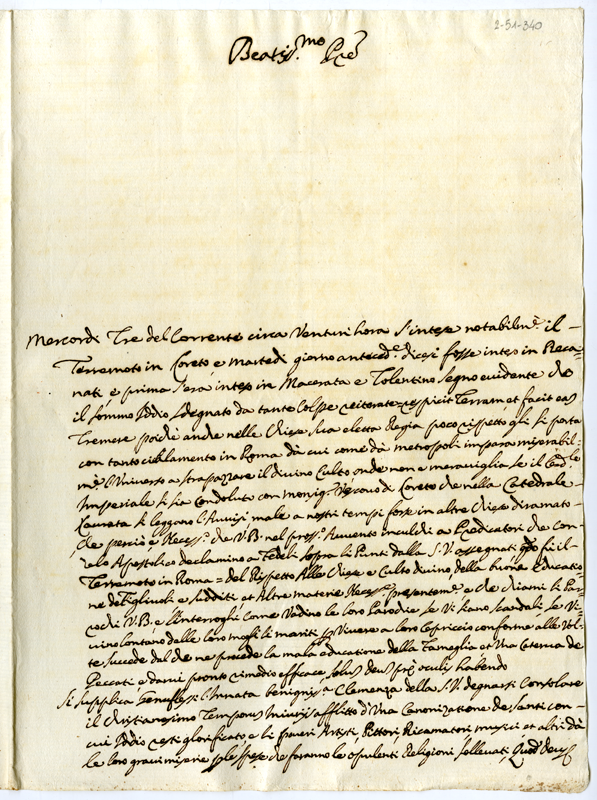 2-51-340
Beatiss.mo Pre
Mercordi Tre del Corrente circa Venturi hora s'intese notabilm.e il
Terremoto in Loreto e Martedi giorno anteced.e dicesi fosse inteso in Reca-
nati, e prima s'era inteso in Macerata e Tolentino segno evidente che
il sommo Iddio sdegnato da tante Colpe reiterate respicit Terram et facit eam
Tremere poiche anche nelle Chiese sua eletta Regia poco rispetto gli si porta
con tanto cicalamento in Roma da cui come da metropoli impara miserabil-
m.e l'Universo a strapazzare il divino Culto onde non e meraviglia se il
Imperiale si sia Condoluto con monsig.r Vescovo di Loreto che nella Catedrale
Laureta si leggono l'Avvisi male a nostri tempi forse in altre Chiese diramato
che perciò è Necess.o che V.B. nel pross.o Avvento inculchi a Predicatori che con
zelo Apostolico declamino a Fedeli sopra li Punti dalla S.V. assegnati fù il
Terremoto in Roma = del Rispetto Alle Chiese e Culto divino, della buona educatio-
ne de Figliuoli e sudditi, et Altre materie Necess.e presentem.e e che chiami li Par-
rochi V.B. e l'Interroghi come Vadino le loro Parochie se Vi siano scandali se Vi-
vino lontano dalle loro mogli li mariti p Vivere a loro Capriccio conforme alle Vol-
te succede dal che ne procede la mala educatione della Fameglia et Una Catena de
Peccati, e darvi pronto rimedio efficace solus Deus pre oculis habendo
Si supplica Genuflessi l'Innata benigniss.a Clemenza della S.V. degnarsi Consolare
il Christianesimo Temporus Iniurijs afflitto d'Una Canonizatione de Santi con
cui Iddio resti glorificato e li poveri Artisti, Pittori, Ricamatori, musici et altri da
le loro gravi miserie p le spese che faranno le opulenti Religioni sollevati, Quod Deus